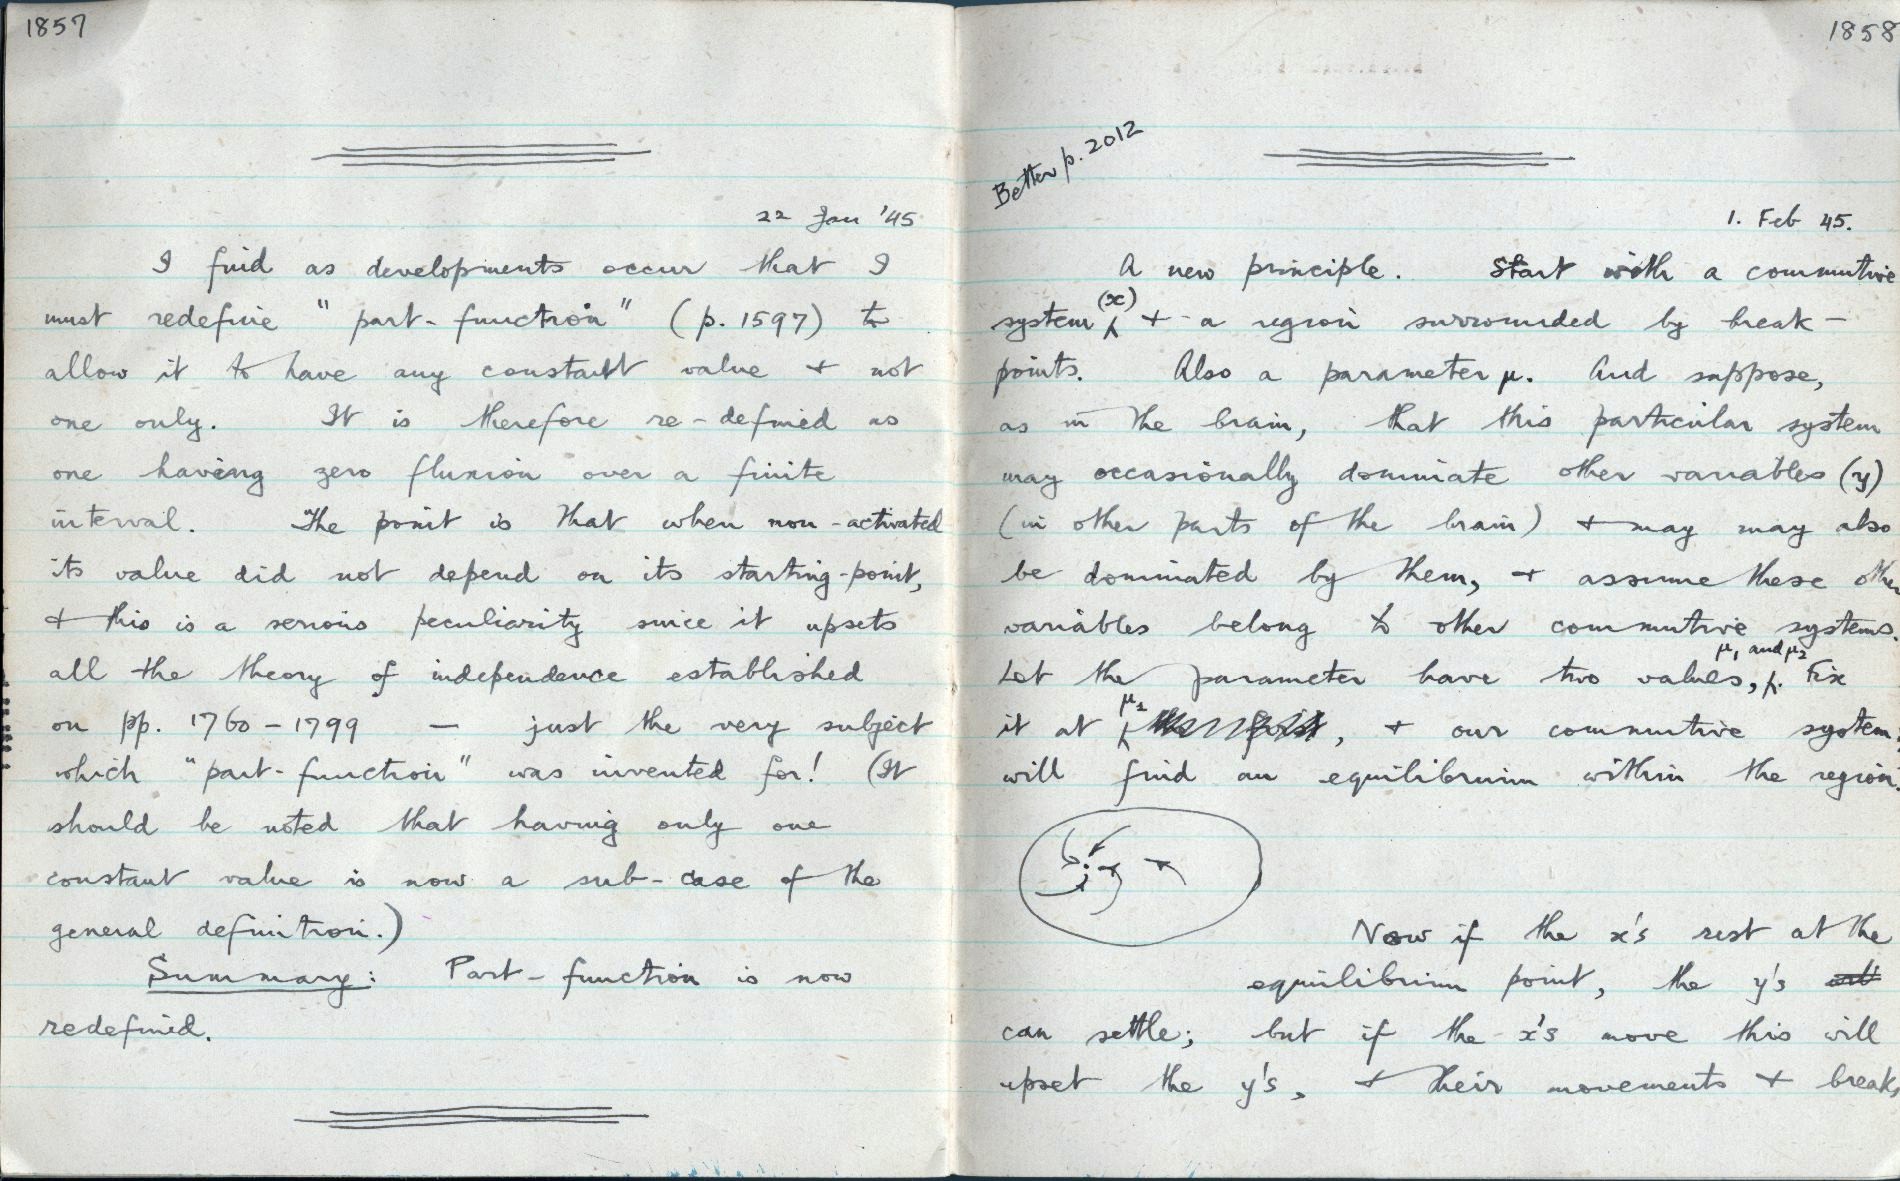 1857
22 Jan '45
I find as developments occur that I
must redefine "part-function" (p. 1597) to
allow it to have any constant value + not
one only. It is therefore re-defined as
one having zero fluxion over a finite
interval. The point is that when non-activated
its value did not depend on its starting-point,
+ this is a serious peculiarity since it upsets
all the theory of independence established
on pp. 1760-1799 — just the very subject
which "part-function" was invented for! (It
should be noted that having only one
constant value is now a sub-case of the
general definition.)
Summary: Part-function is now
redefined.
1858
Better p. 2012
1. Feb 45.
A new principle. Start with a commutive
system (x) + a region surrounded by break-
points. Also a parameter μ. And suppose,
as in the brain, that this particular system
may occasionally dominate other variables (y)
(in other parts of the brain) + may may also
be dominated by them, + assume these other
variables belong to other commutive systems.
Let the parameter have two values, μ₁ and μ₂. Fix
it at , + our commutive system
will find an equilibrium within the region.
Now if the x's rest at the
equilibrium point, the y's
can settle; but if the x's move this will
upset the y's, + their movements + breaks,